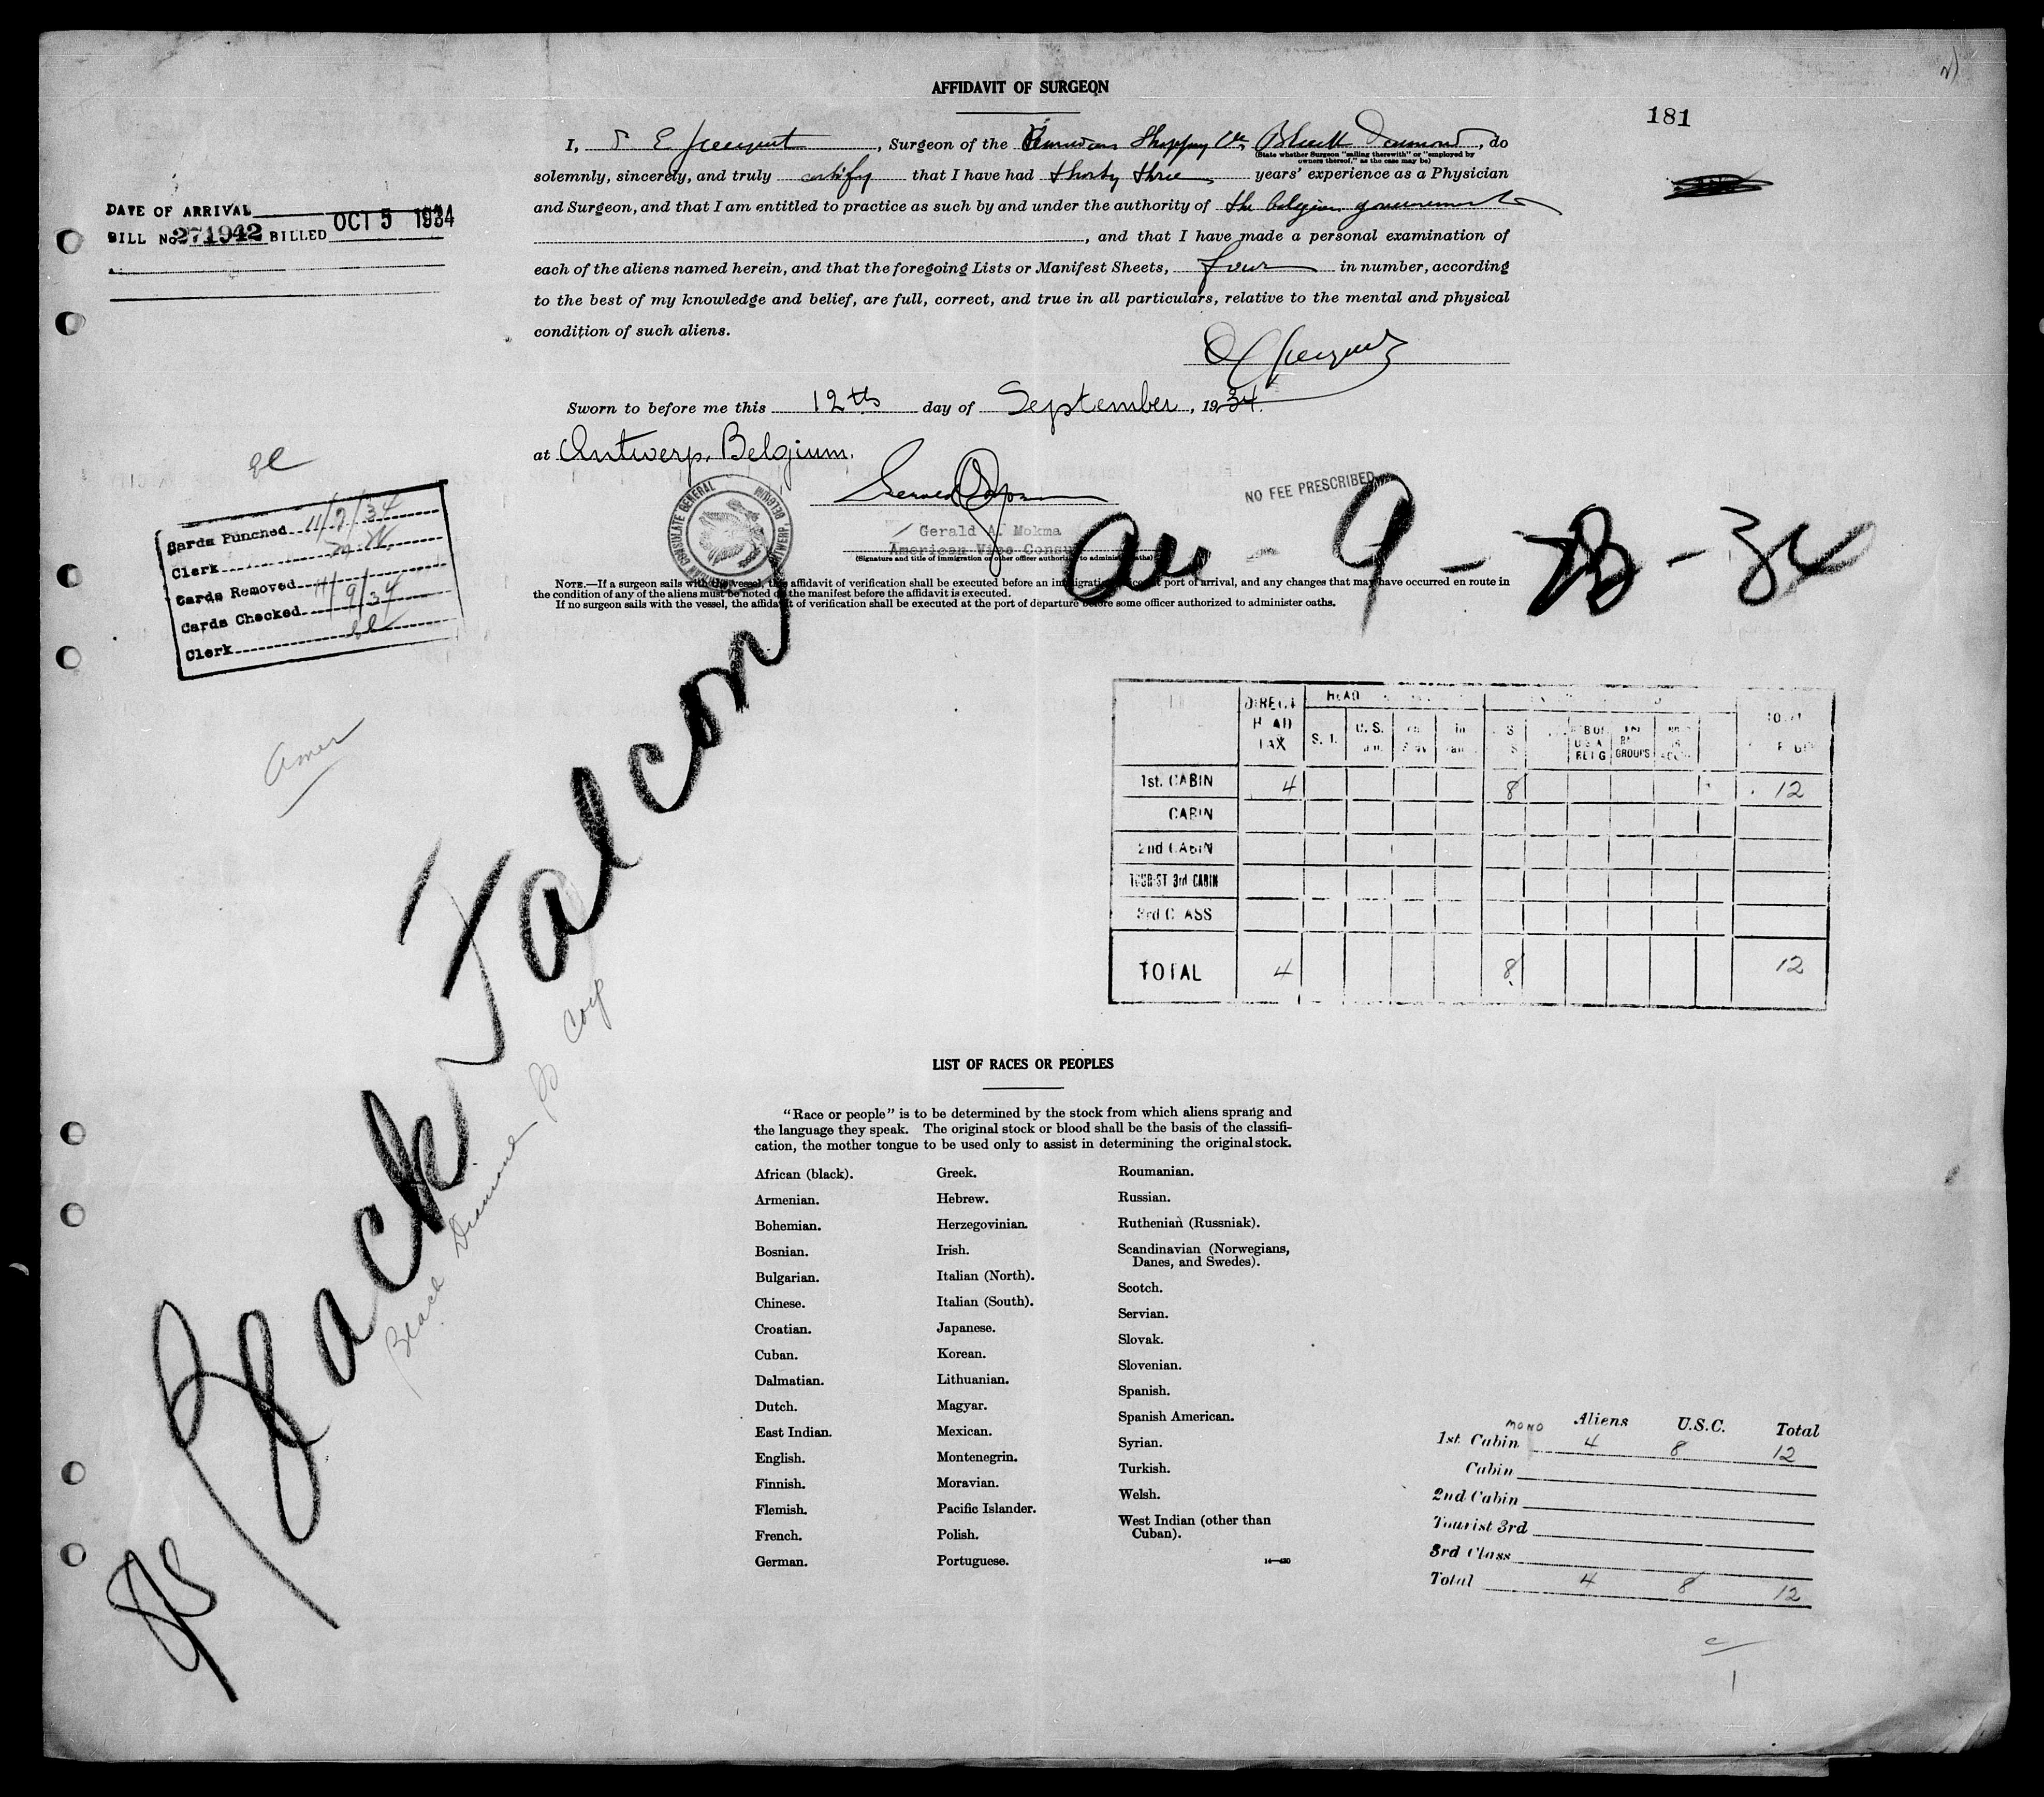 AFFIDAVIT OF SURGEON
181
I, , Surgeon of the Shipping Co. Black Diamond, do
(State whether Surgeon "sailing therewith" or "employed by
owners thereof," as the case may be)
solemnly, sincerely, and truly certify that I have had thirty three years' experience as a Physician
and Surgeon, and that I am entitled to practice as such by and under the authority of the belgian government
, and that I have made a personal examination of
each of the aliens named herein, and that the foregoing Lists or Manifest Sheets, four in number, according
to the best of my knowledge and belief, are full, correct, and true in all particulars, relative to the mental and physical
condition of such aliens.
DATE OF ARRIVAL
BILL No. 271942 BILLED OCT 5 1934
Sworn to before me this 12th day of September, 1934.
at Antwerp, Belgium.
AMERICAN CONSULATE GENERAL ANTWERP, BELGIUM
Gerald A. Mokma
American Vice Consul
(Signature and title of immigration or other officer authorized to administer oaths)
NO FEE PRESCRIBED
Arr - 9 - 23 - 34
NOTE.—If a surgeon sails with the vessel, this affidavit of verification shall be executed before an immigration officer at port of arrival, and any changes that may have occurred en route in
the condition of any of the aliens must be noted on the manifest before the affidavit is executed.
If no surgeon sails with the vessel, the affidavit of verification shall be executed at the port of departure before some officer authorized to administer oaths.
el
Cards Punched 11/7/34
Clerk
Cards Removed
Cards Checked 11/9/34
Clerk el
amer
SS Black Falcon
Black Diamond SS Corp
DIRECT HEAD TAX
HEAD
S. I.
U. S.
U S A
GROUPS
TOTAL
1st. CABIN 4 8 12
CABIN
2nd CABIN
TOURIST 3rd CABIN
3rd CLASS
TOTAL 4 8 12
LIST OF RACES OR PEOPLES
"Race or people" is to be determined by the stock from which aliens sprang and
the language they speak. The original stock or blood shall be the basis of the classifi-
cation, the mother tongue to be used only to assist in determining the original stock.
African (black).
Armenian.
Bohemian.
Bosnian.
Bulgarian.
Chinese.
Croatian.
Cuban.
Dalmatian.
Dutch.
East Indian.
English.
Finnish.
Flemish.
French.
German.
Greek.
Hebrew.
Herzegovinian.
Irish.
Italian (North).
Italian (South).
Japanese.
Korean.
Lithuanian.
Magyar.
Mexican.
Montenegrin.
Moravian.
Pacific Islander.
Polish.
Portuguese.
Roumanian.
Russian.
Ruthenian (Russniak).
Scandinavian (Norwegians,
Danes, and Swedes).
Scotch.
Servian.
Slovak.
Slovenian.
Spanish.
Spanish American.
Syrian.
Turkish.
Welsh.
West Indian (other than
Cuban).
14—430
MONO Aliens U.S.C. Total
1st. Cabin 4 8 12
Cabin
2nd Cabin
Tourist 3rd
3rd Class
Total 4 8 12